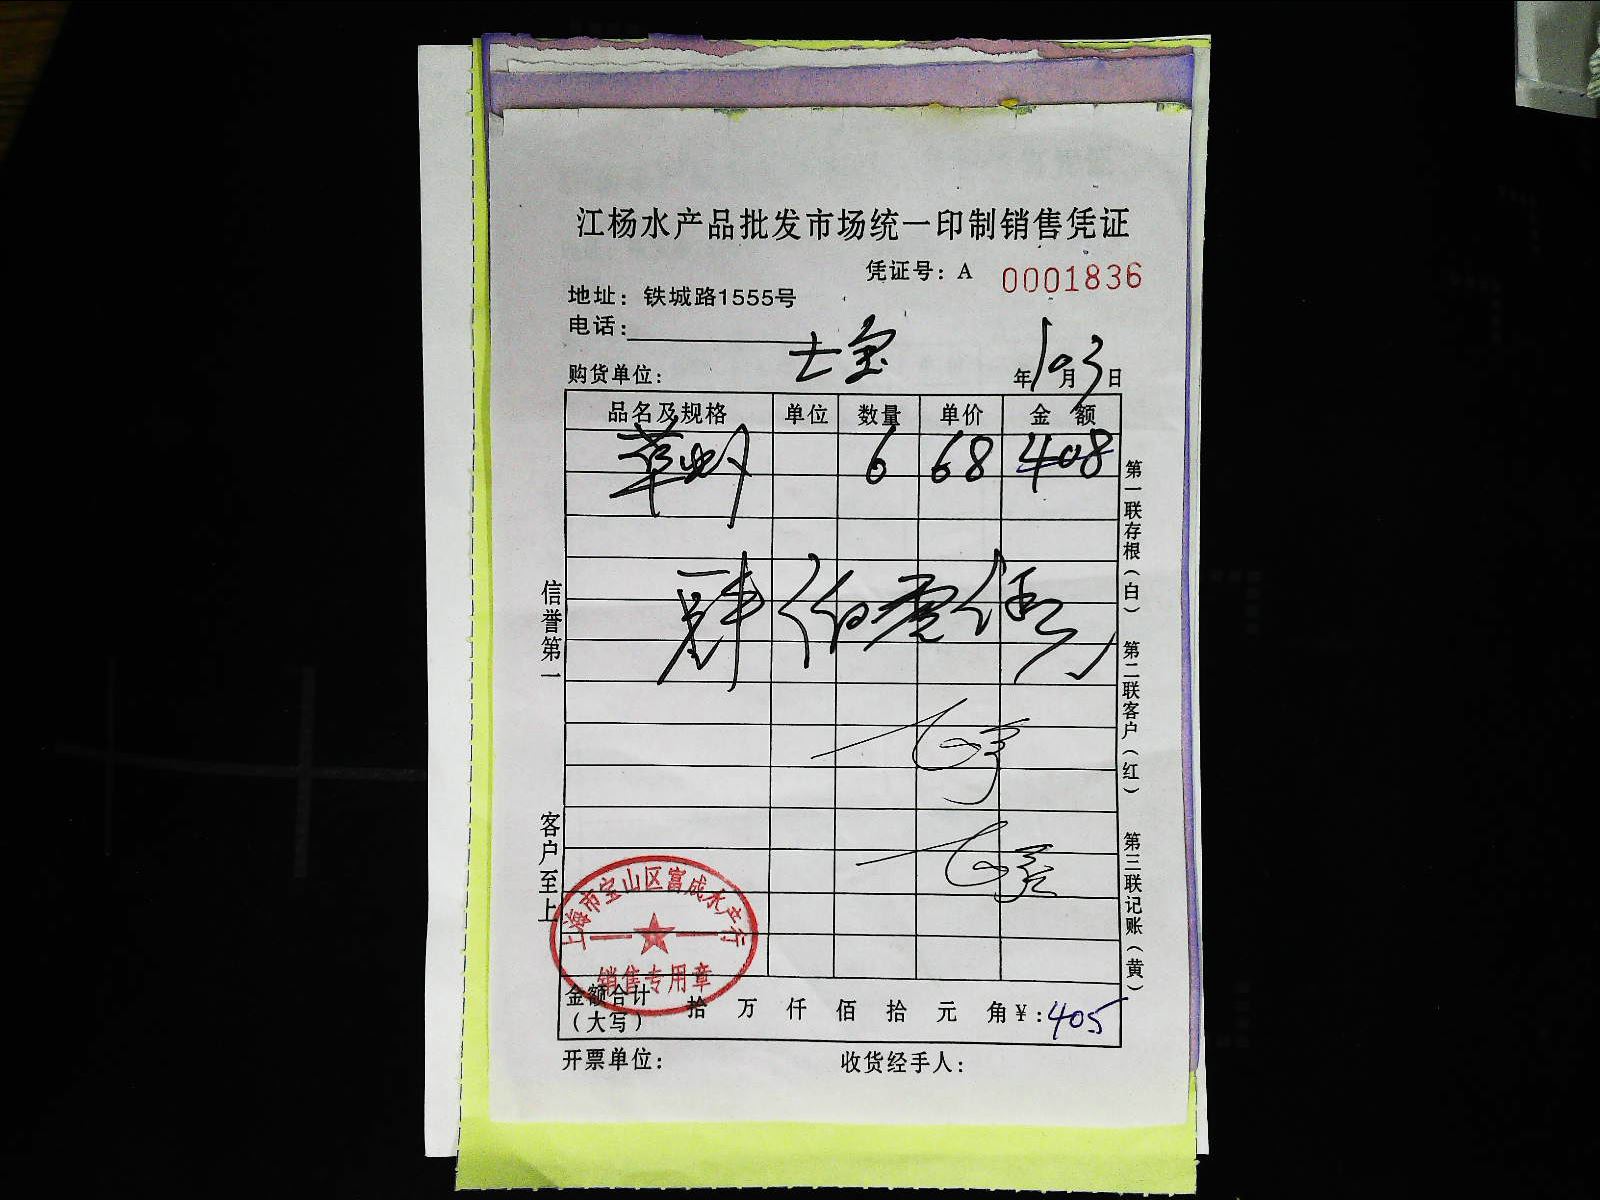 江杨水产品批发市场统一印制销售凭证
凭证号：A 0001836
地址：铁城路1555号
电话：
购货单位： 士宝 年10月3日
品名及规格 单位 数量 单价 金额
草虾 6 68 408
肆佰零伍
金额合计（大写） 拾 万 仟 佰 拾 元 角 ¥：405
开票单位： 收货经手人：
信誉第一
客户至上
第一联存根（白）
第二联客户（红）
第三联记账（黄）
上海市宝山区富成水产行
销售专用章